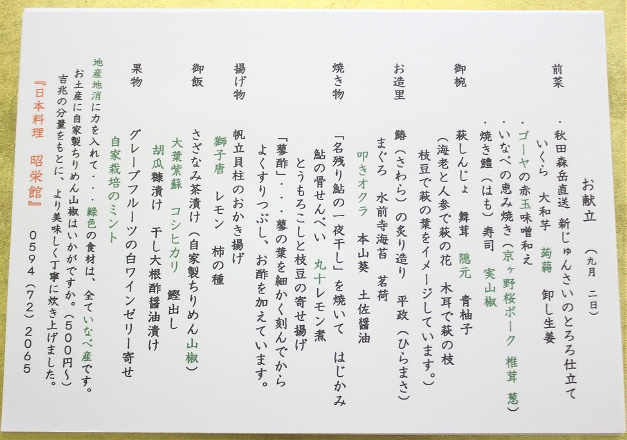 お献立 （九月 二日）
前菜 ・秋田森岳直送 新じゅんさいのとろろ仕立て
いくら 大和芋 蒟蒻 卸し生姜
・ゴーヤの赤玉味噌和え
・いなべの恵み焼き（京ヶ野桜ポーク 椎茸 葱）
・焼き鱧（はも）寿司 実山椒
御椀 萩しんじょ 舞茸 隠元 青柚子
（海老と人参で萩の花 木耳で萩の枝
枝豆で萩の葉をイメージしています。）
お造里 鰆（さわら）の炙り造り 平政（ひらまさ）
まぐろ 水前寺海苔 茗荷
叩きオクラ 本山葵 土佐醤油
焼き物 「名残り鮎の一夜干し」を焼いて はじかみ
鮎の骨せんべい 丸十レモン煮
とうもろこしと枝豆の寄せ揚げ
「蓼酢」・・・蓼の葉を細かく刻んでから
よくすりつぶし、お酢を加えています。
揚げ物 帆立貝柱のおかき揚げ
獅子唐 レモン 柿の種
御飯 さざなみ茶漬け（自家製ちりめん山椒）
大葉紫蘇 コシヒカリ 鰹出し
胡瓜糠漬け 干し大根酢醤油漬け
果物 グレープフルーツの白ワインゼリー寄せ
自家栽培のミント
地産地消に力を入れて・・・緑色の食材は、全ていなべ産です。
お土産に自家製ちりめん山椒はいかがですか。（５００円～）
吉兆の分量をもとに、より美味しく丁寧に炊き上げました。
『日本料理 昭栄館』 ０５９４（７２）２０６５